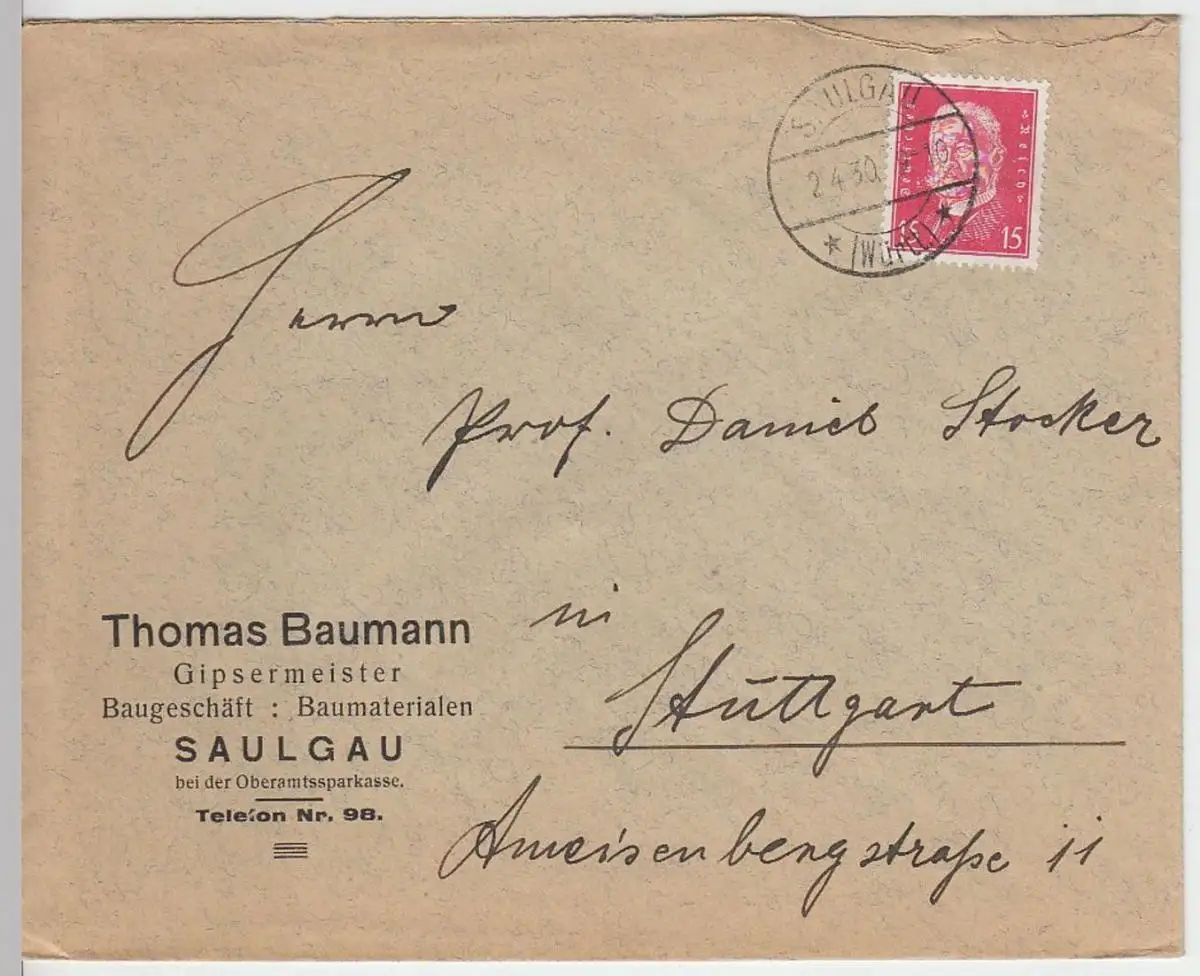 SAULGAU
2.4.30.
(Württ.)
Deutsches Reich
15 15
Herrn
Prof. Daniel Stocker
in
Stuttgart
Ameisenbergstraße 11
Thomas Baumann
Gipsermeister
Baugeschäft : Baumaterialen
SAULGAU
bei der Oberamtssparkasse.
Telefon Nr. 98.